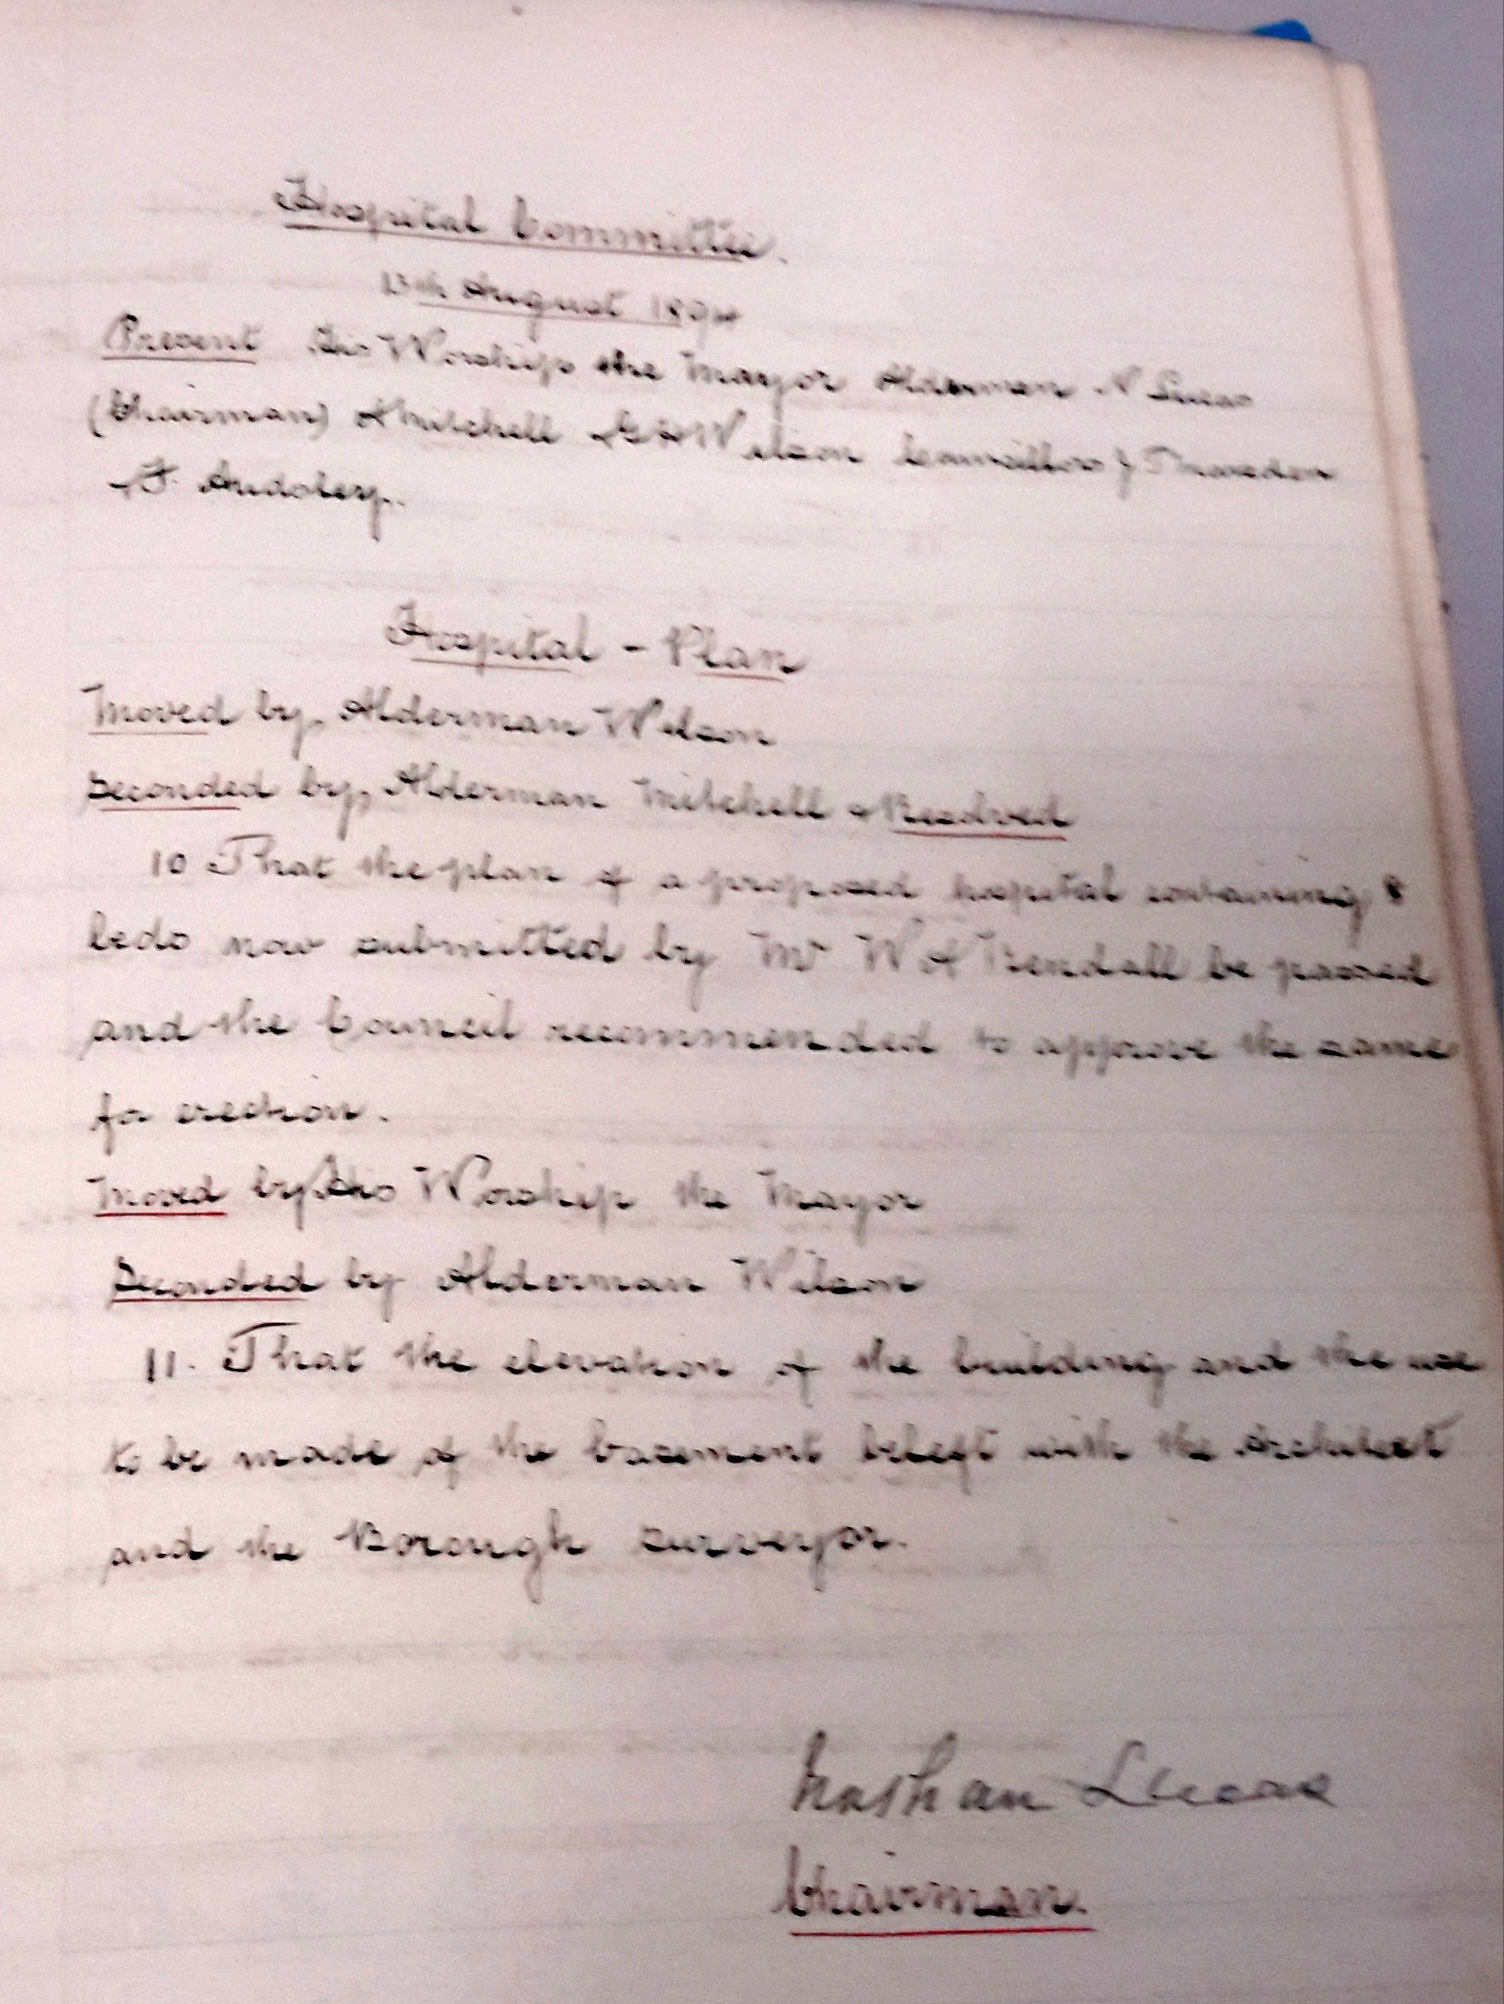 Hospital Committee.
13th August 1894
Present His Worship the Mayor Alderman N Lucas
(Chairman) A Mitchell & G H Wilson Councillors J
& F.
Hospital - Plan
Moved by Alderman Wilson
Seconded by Alderman Mitchell & Resolved
10 That the plan of a proposed hospital containing 8
beds now submitted by Mr W A Kendall be passed
and the Council recommended to approve the same
for erection.
Moved by His Worship the Mayor
Seconded by Alderman Wilson
11. That the elevation of the building and the use
to be made of the basement beleft with the Architect
and the Borough Surveyor.
Nathan Lucas
Chairman.